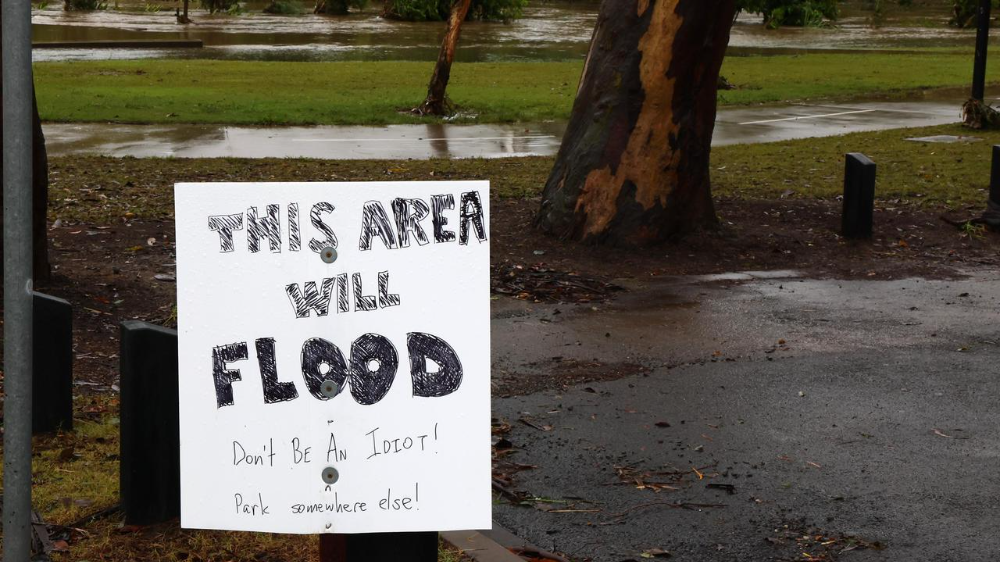 THIS AREA
WILL
FLOOD
Don't Be An Idiot!
Park somewhere else!